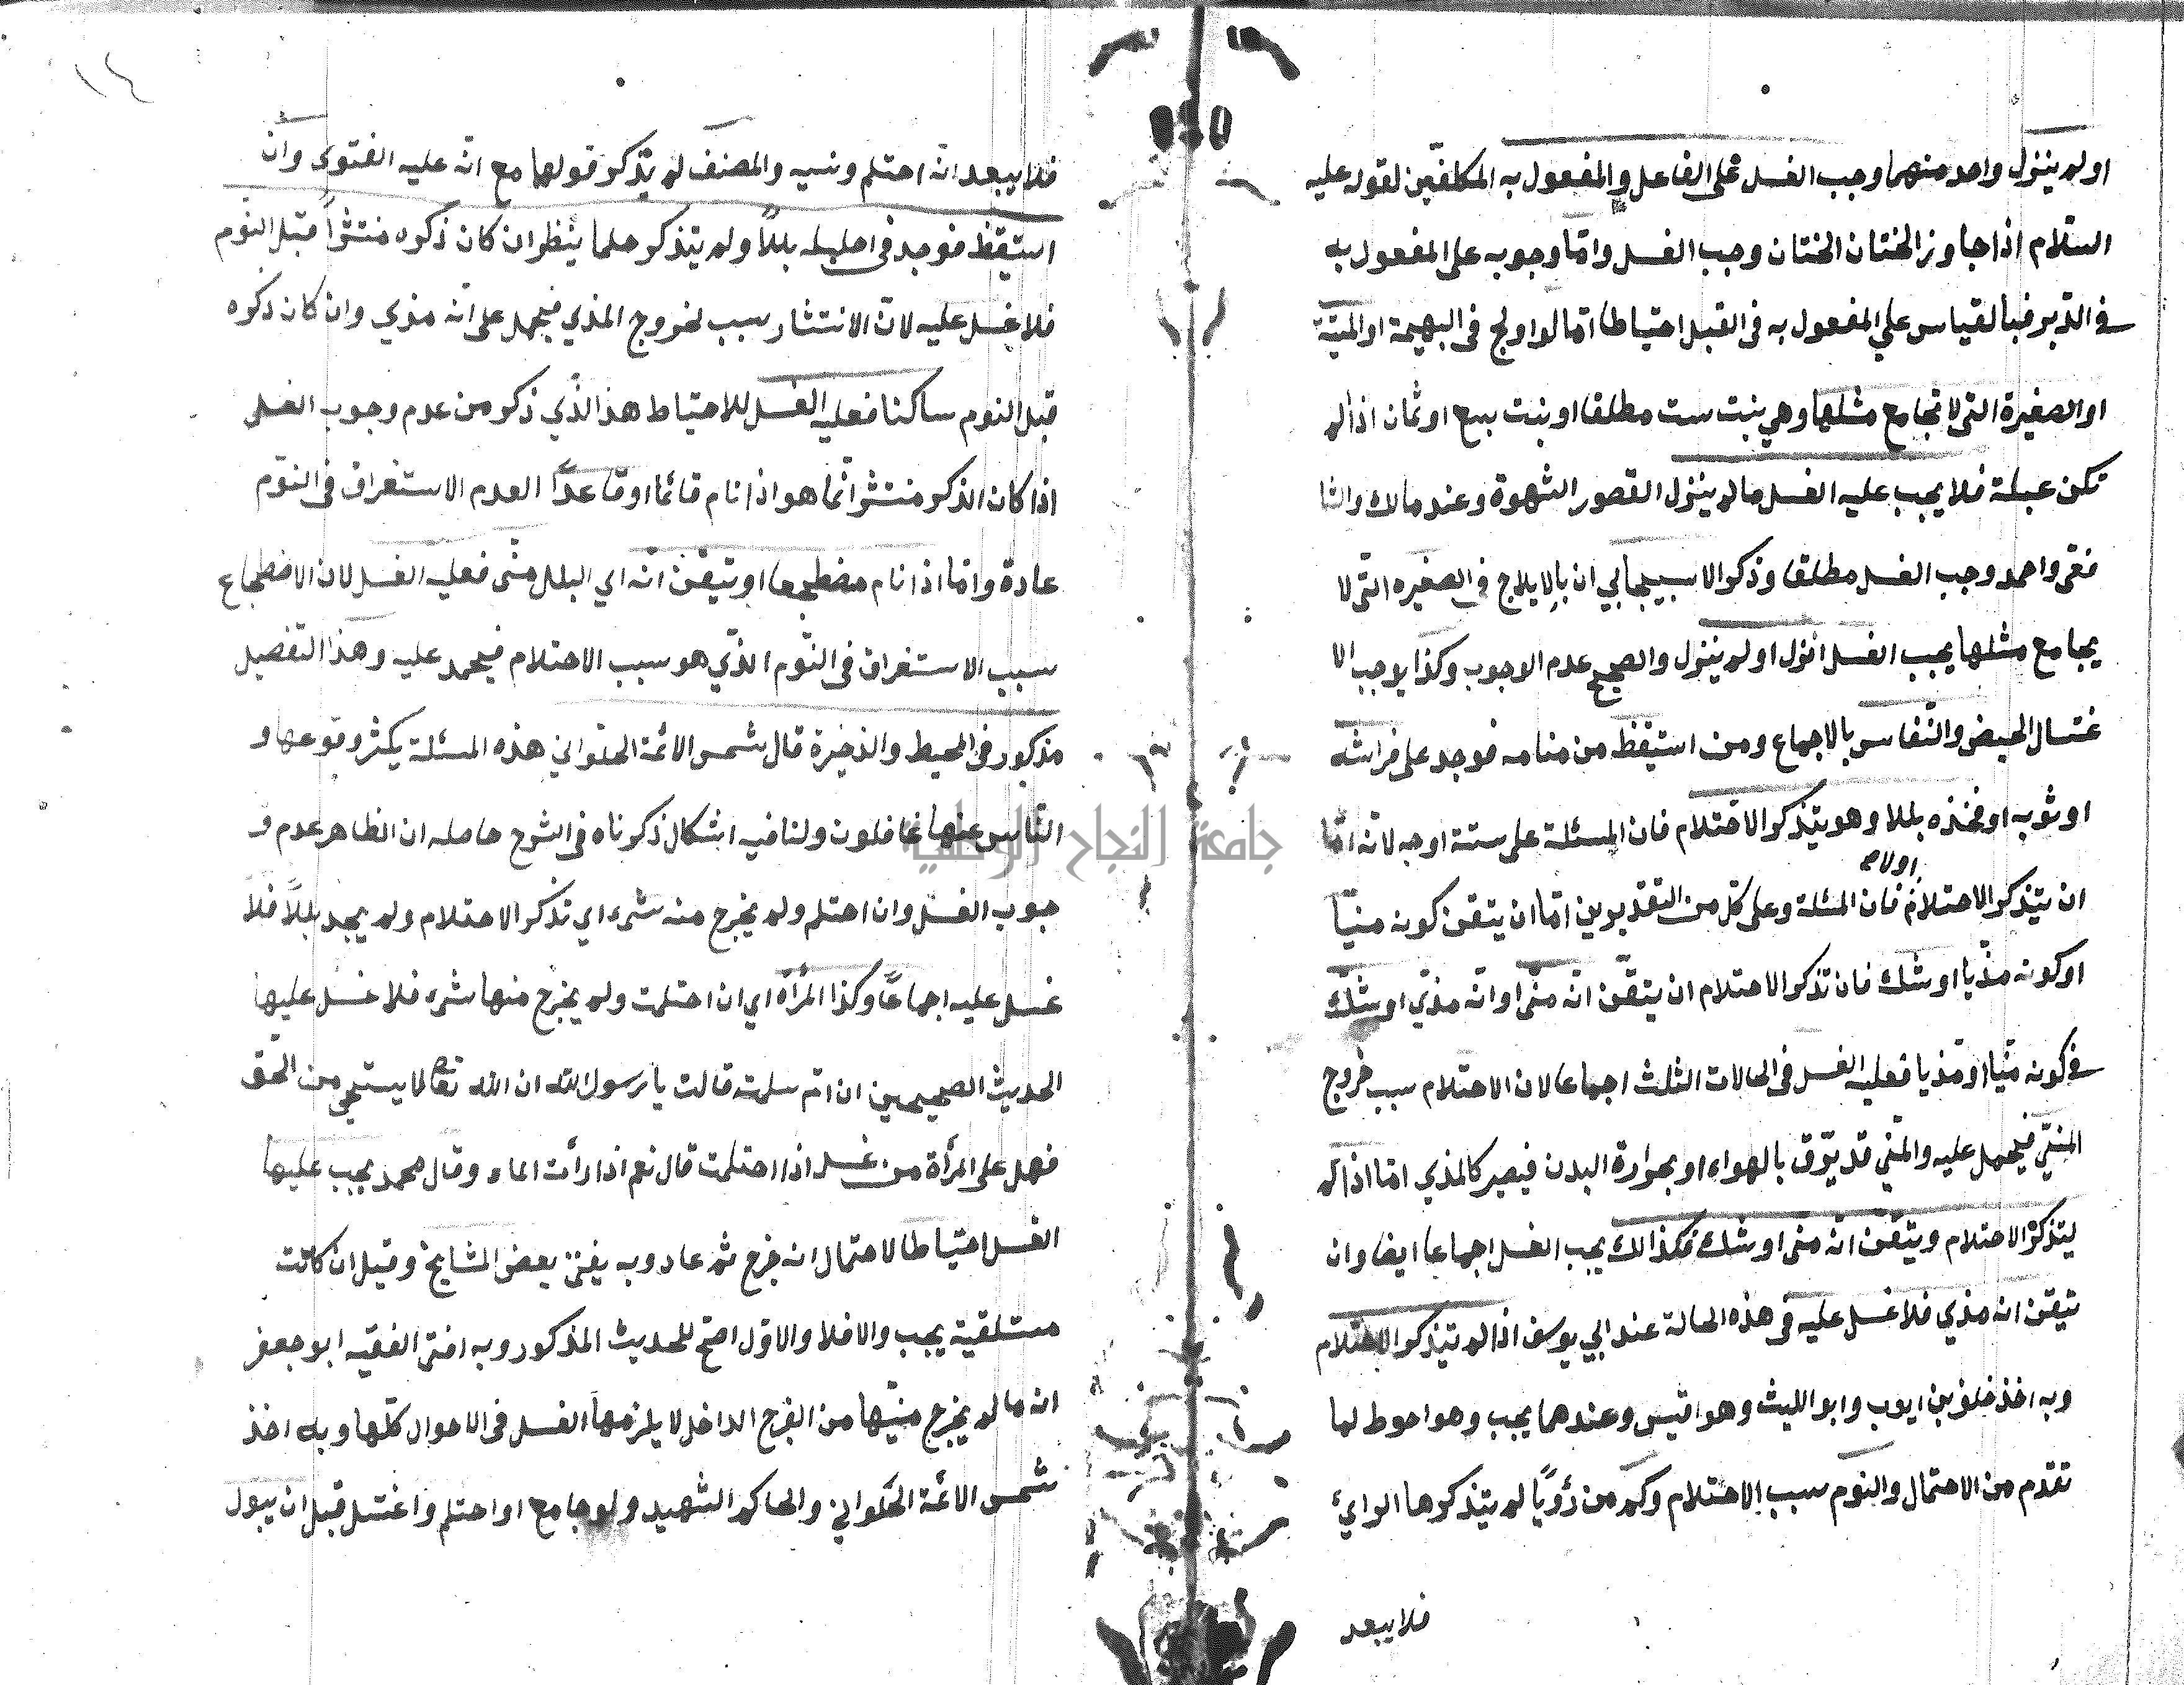 او لم ينزل واحد منهما وجب الغسل على الفاعل والمفعول به المكلفين لقوله عليه
السلام اذا جاوز الختان الختان وجب الغسل واما وجوبه على المفعول به
في الدبر فبالقياس علي المفعول به في القبل احتياطا اما لو اولج في البهيمة او الميتة
او الصغيرة التي لا تجامع مثلها وهي بنت ست مطلقا او بنت سبع او ثمان اذا لم
تكن عبلة فلا يجب عليه الغسل ما لم ينزل القصور الشهوة وعند مالك والشا
فعي واحمد وجب الغسل مطلقا وذكر الاسبيجابي ان بالايلاج في الصغيره التي لا
يجامع مثلها يجب الغسل انزل او لم ينزل والصحيح عدم الوجوب وكذا يوجب الا
غتسال الحيض والنفاس بالاجماع ومن استيقظ من منامه فوجد على فراشه
او ثوبه او فخذه بللا وهو يتذكر الاحتلام فان المسئلة على ستة اوجه لانه اما
ان يتذكر الاحتلام فان المسئلة وعلى كل من التقديرين اما ان يتقن كونه منيا
اولا صح
او كونه مذيا او شك فان تذكر الاحتلام ان يتقن انه مني او انه مذي او شك
في كونه منيا او مذيا فعليه الغسل في الحالات الثلث اجماعا لان الاحتلام سبب خروج
المني فيحمل عليه والمني قد يرق بالهواء او بحرارة البدن فيصير كالمذي اما اذا لم
يتذكر الاحتلام ويتقن انه مني او شك فكذالك يجب الغسل اجماعا ايضا وان
تيقن انه مذي فلا غسل عليه في هذه الحالة عند ابي يوسف اذا لم يتذكر الاحتلام
وبه اخذ خلف بن ايوب وابو الليث وهو اقيس وعندهما يجب وهو احوط لما
تقدم من الاحتمال والنوم سبب الاحتلام وكم من رؤيا لم يتذكرها الرايئ
فلا يبعد
١٤
فلا يبعد انه احتلم ونسيه والمصنف لم يذكر قولهما مع انه عليه الفتوى وان
استيقظ فوجد في احليله بللا ولم يتذكر حلما ينظر ان كان ذكره منتشرا قبل النوم
فلا غسل عليه لان الانتشار سبب لخروج المذي فيحمل على انه مذي وان كان ذكره
قبل النوم ساكنا فعليه الغسل للاحتياط هذا الذي ذكر من عدم وجوب الغسل
اذا كان الذكر منتشرا انما هو اذا نام قائما او قاعدا لعدم الاستغراق في النوم
عادة واما اذا نام مضطجعا او تيقن انه اي البلل مني فعليه الغسل لان الاضطجاع
سبب الاستغراق في النوم الذي هو سبب الاحتلام فيحمد عليه وهذا التفصيل
مذكور في المحيط والذخيرة قال شمس الائمة الحلواني هذه المسئلة يكثر وقوعها و
الناس عنها غافلون ولنا فيه اشكال ذكرناه في الشرح حاصله ان الظاهر عدم و
جوب الغسل وان احتلم ولم يخرج منه شيء اي تذكر الاحتلام ولم يجد بللا فلا
غسل عليه اجماعا وكذا المرأة اي ان احتلمت ولم يخرج منها شيء فلا غسل عليها
الحديث الصحيحين ان ام سلمة قالت يا رسول الله ان الله تعالى لا يستحي من الحق
فهل على المرأة من غسل اذا احتلمت قال نعم اذا رأت الماء وقال محمد يجب عليها
الغسل احتياطا لاحتمال انه خرج ثم عاد وبه يفتي بعض المشايخ وقيل ان كانت
مستلقية يجب والا فلا والاول اصح للحديث المذكور وبه افتى الفقيه ابو جعفر
انه ما لم يخرج منيها من الفرج الداخل لا يلزمها الغسل في الاحوال كلها وبه اخذ
شمس الائمة الحلواني والحاكم الشهيد ولو جامع او احتلم واغتسل قبل ان يبول
جامعة النجاح الوطنية